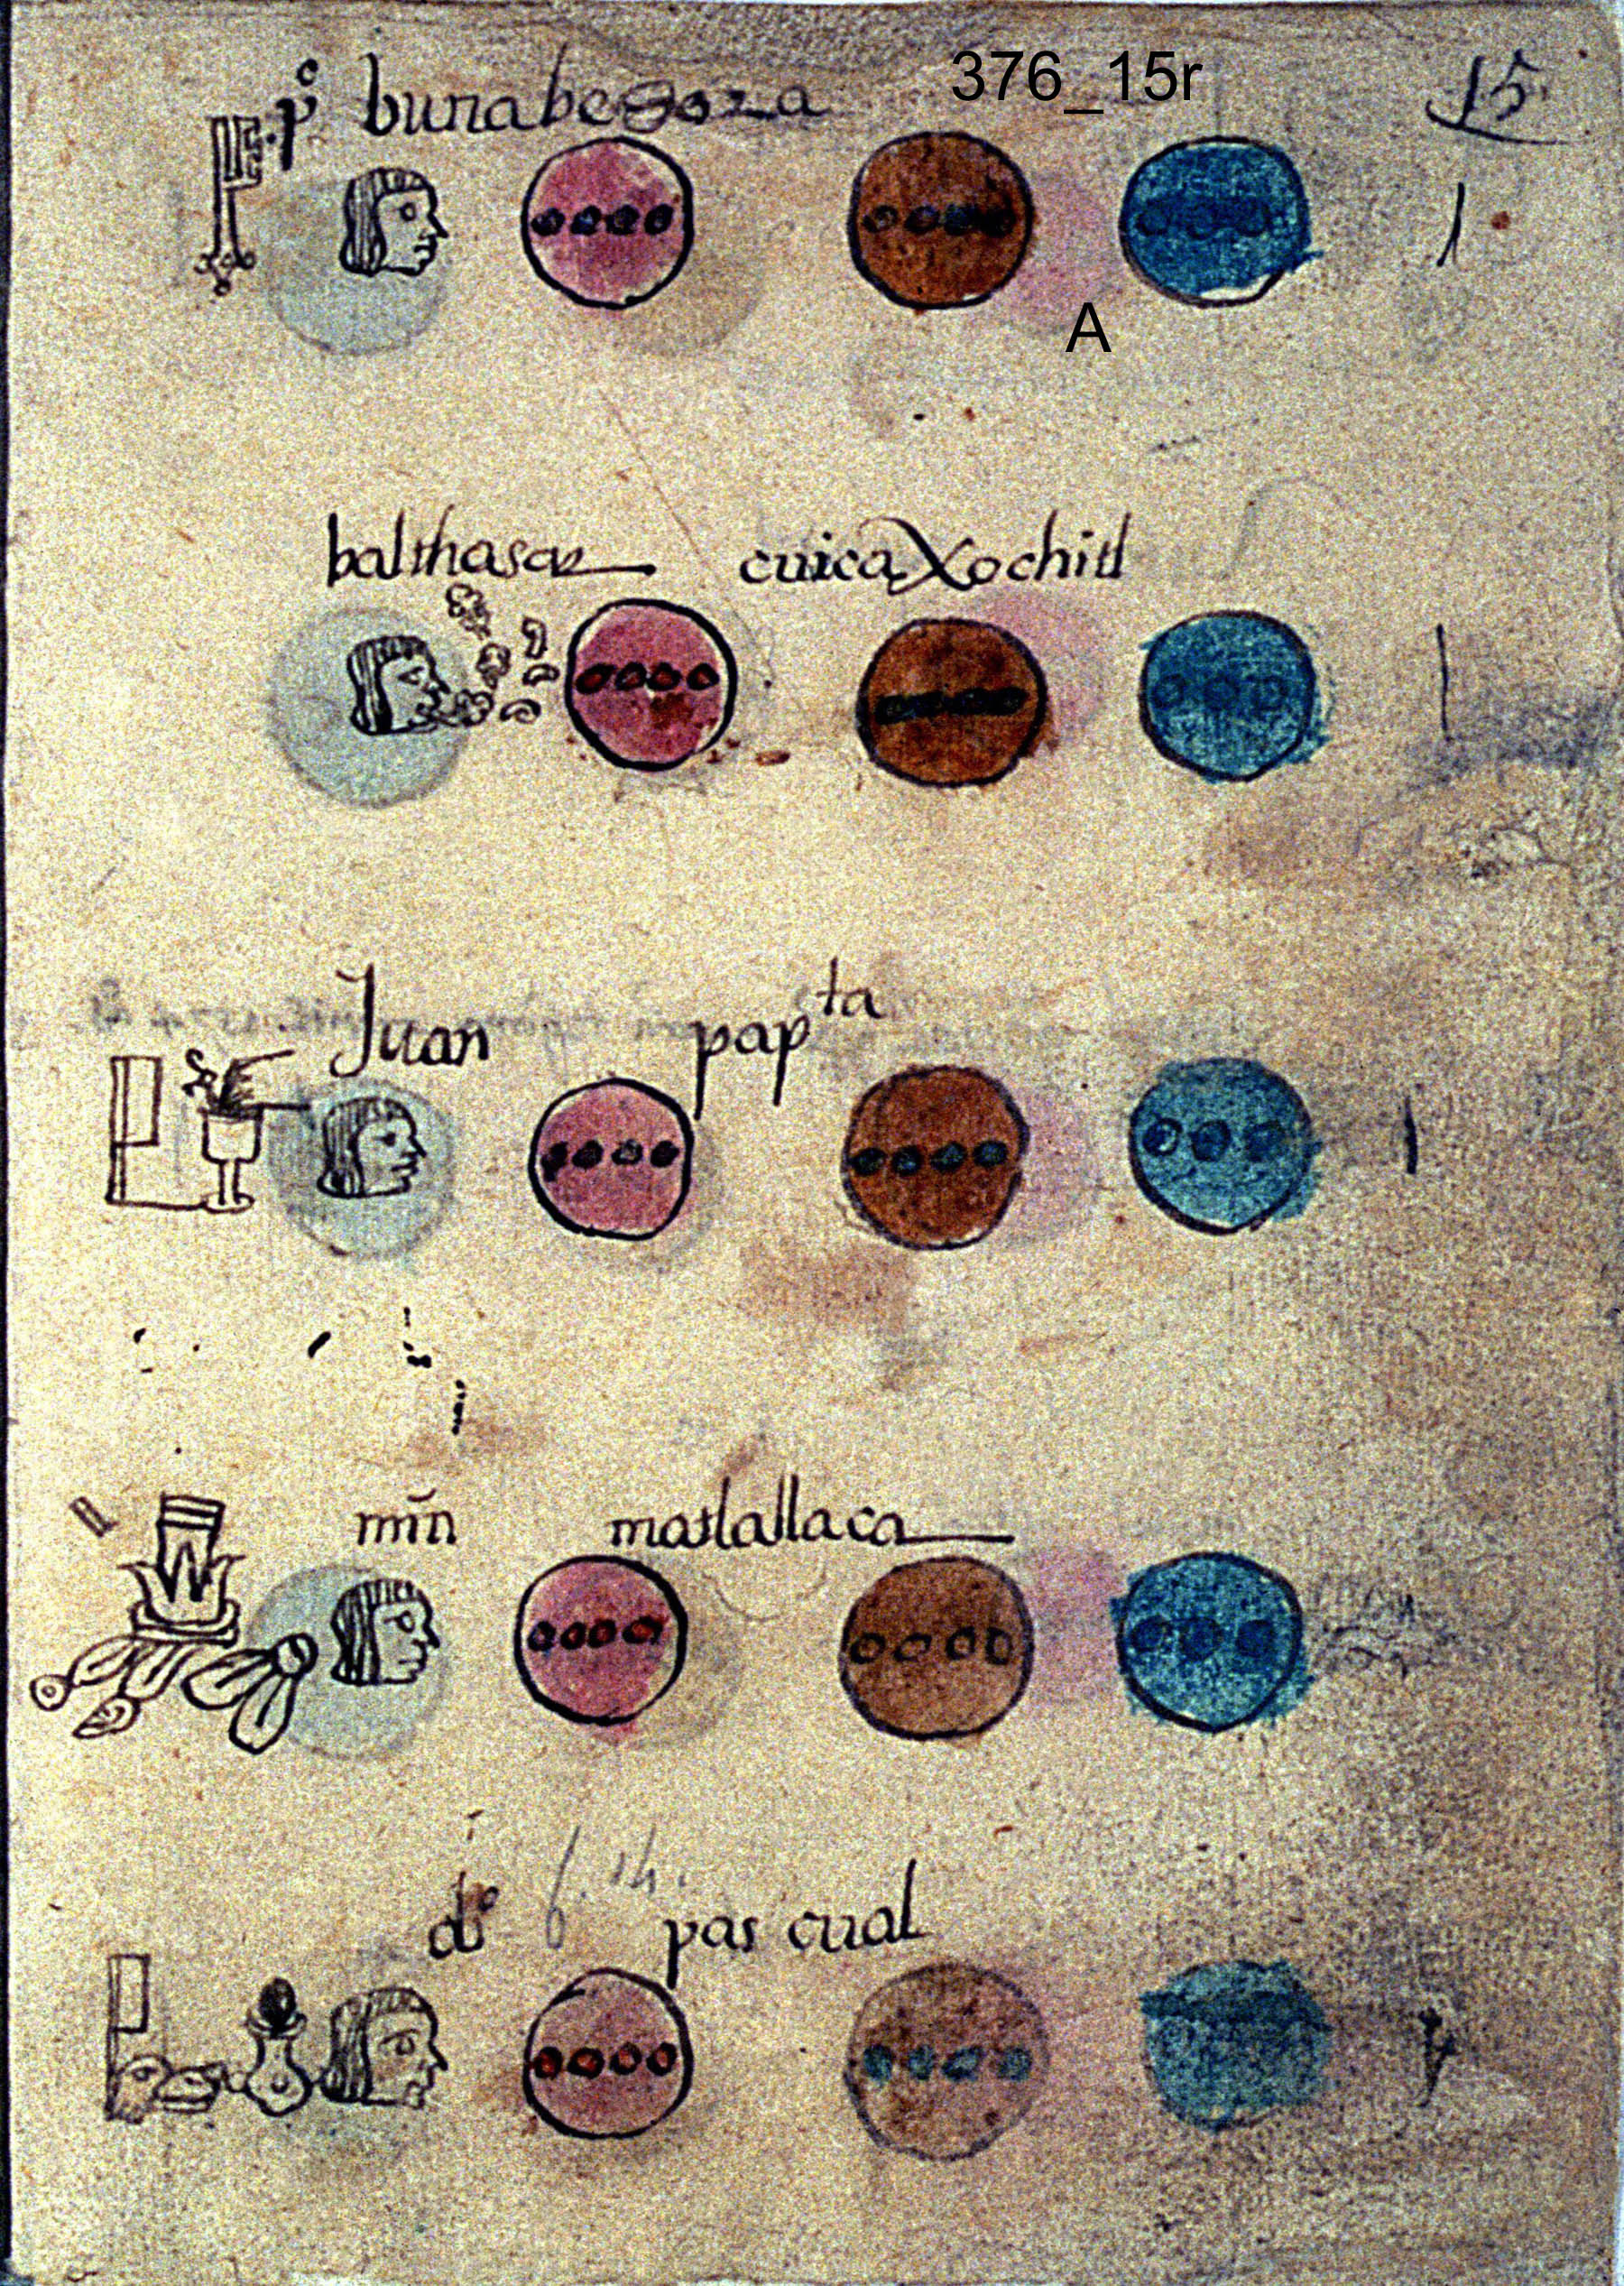 376_15r
15
pº bunabegoza
A
balthasar cuicaXochitl
Juan papta
mīn matlallaca
dº f. 14.
pas cual